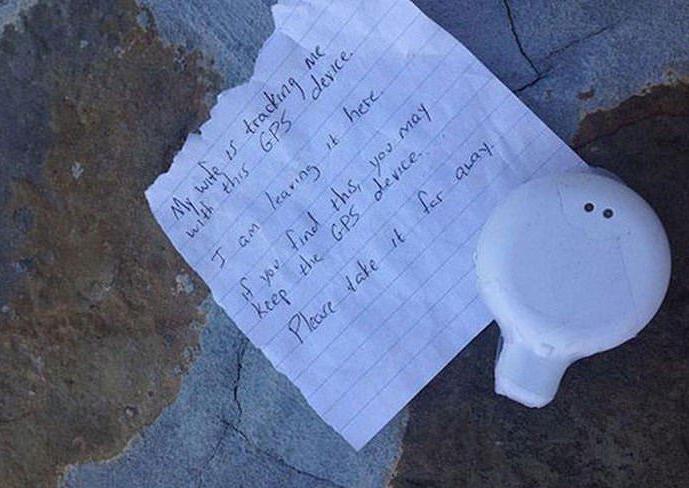 My wife is tracking me
with this GPS device.
I am leaving it here.
If you find this, you may
keep the GPS device.
Please take it far away.